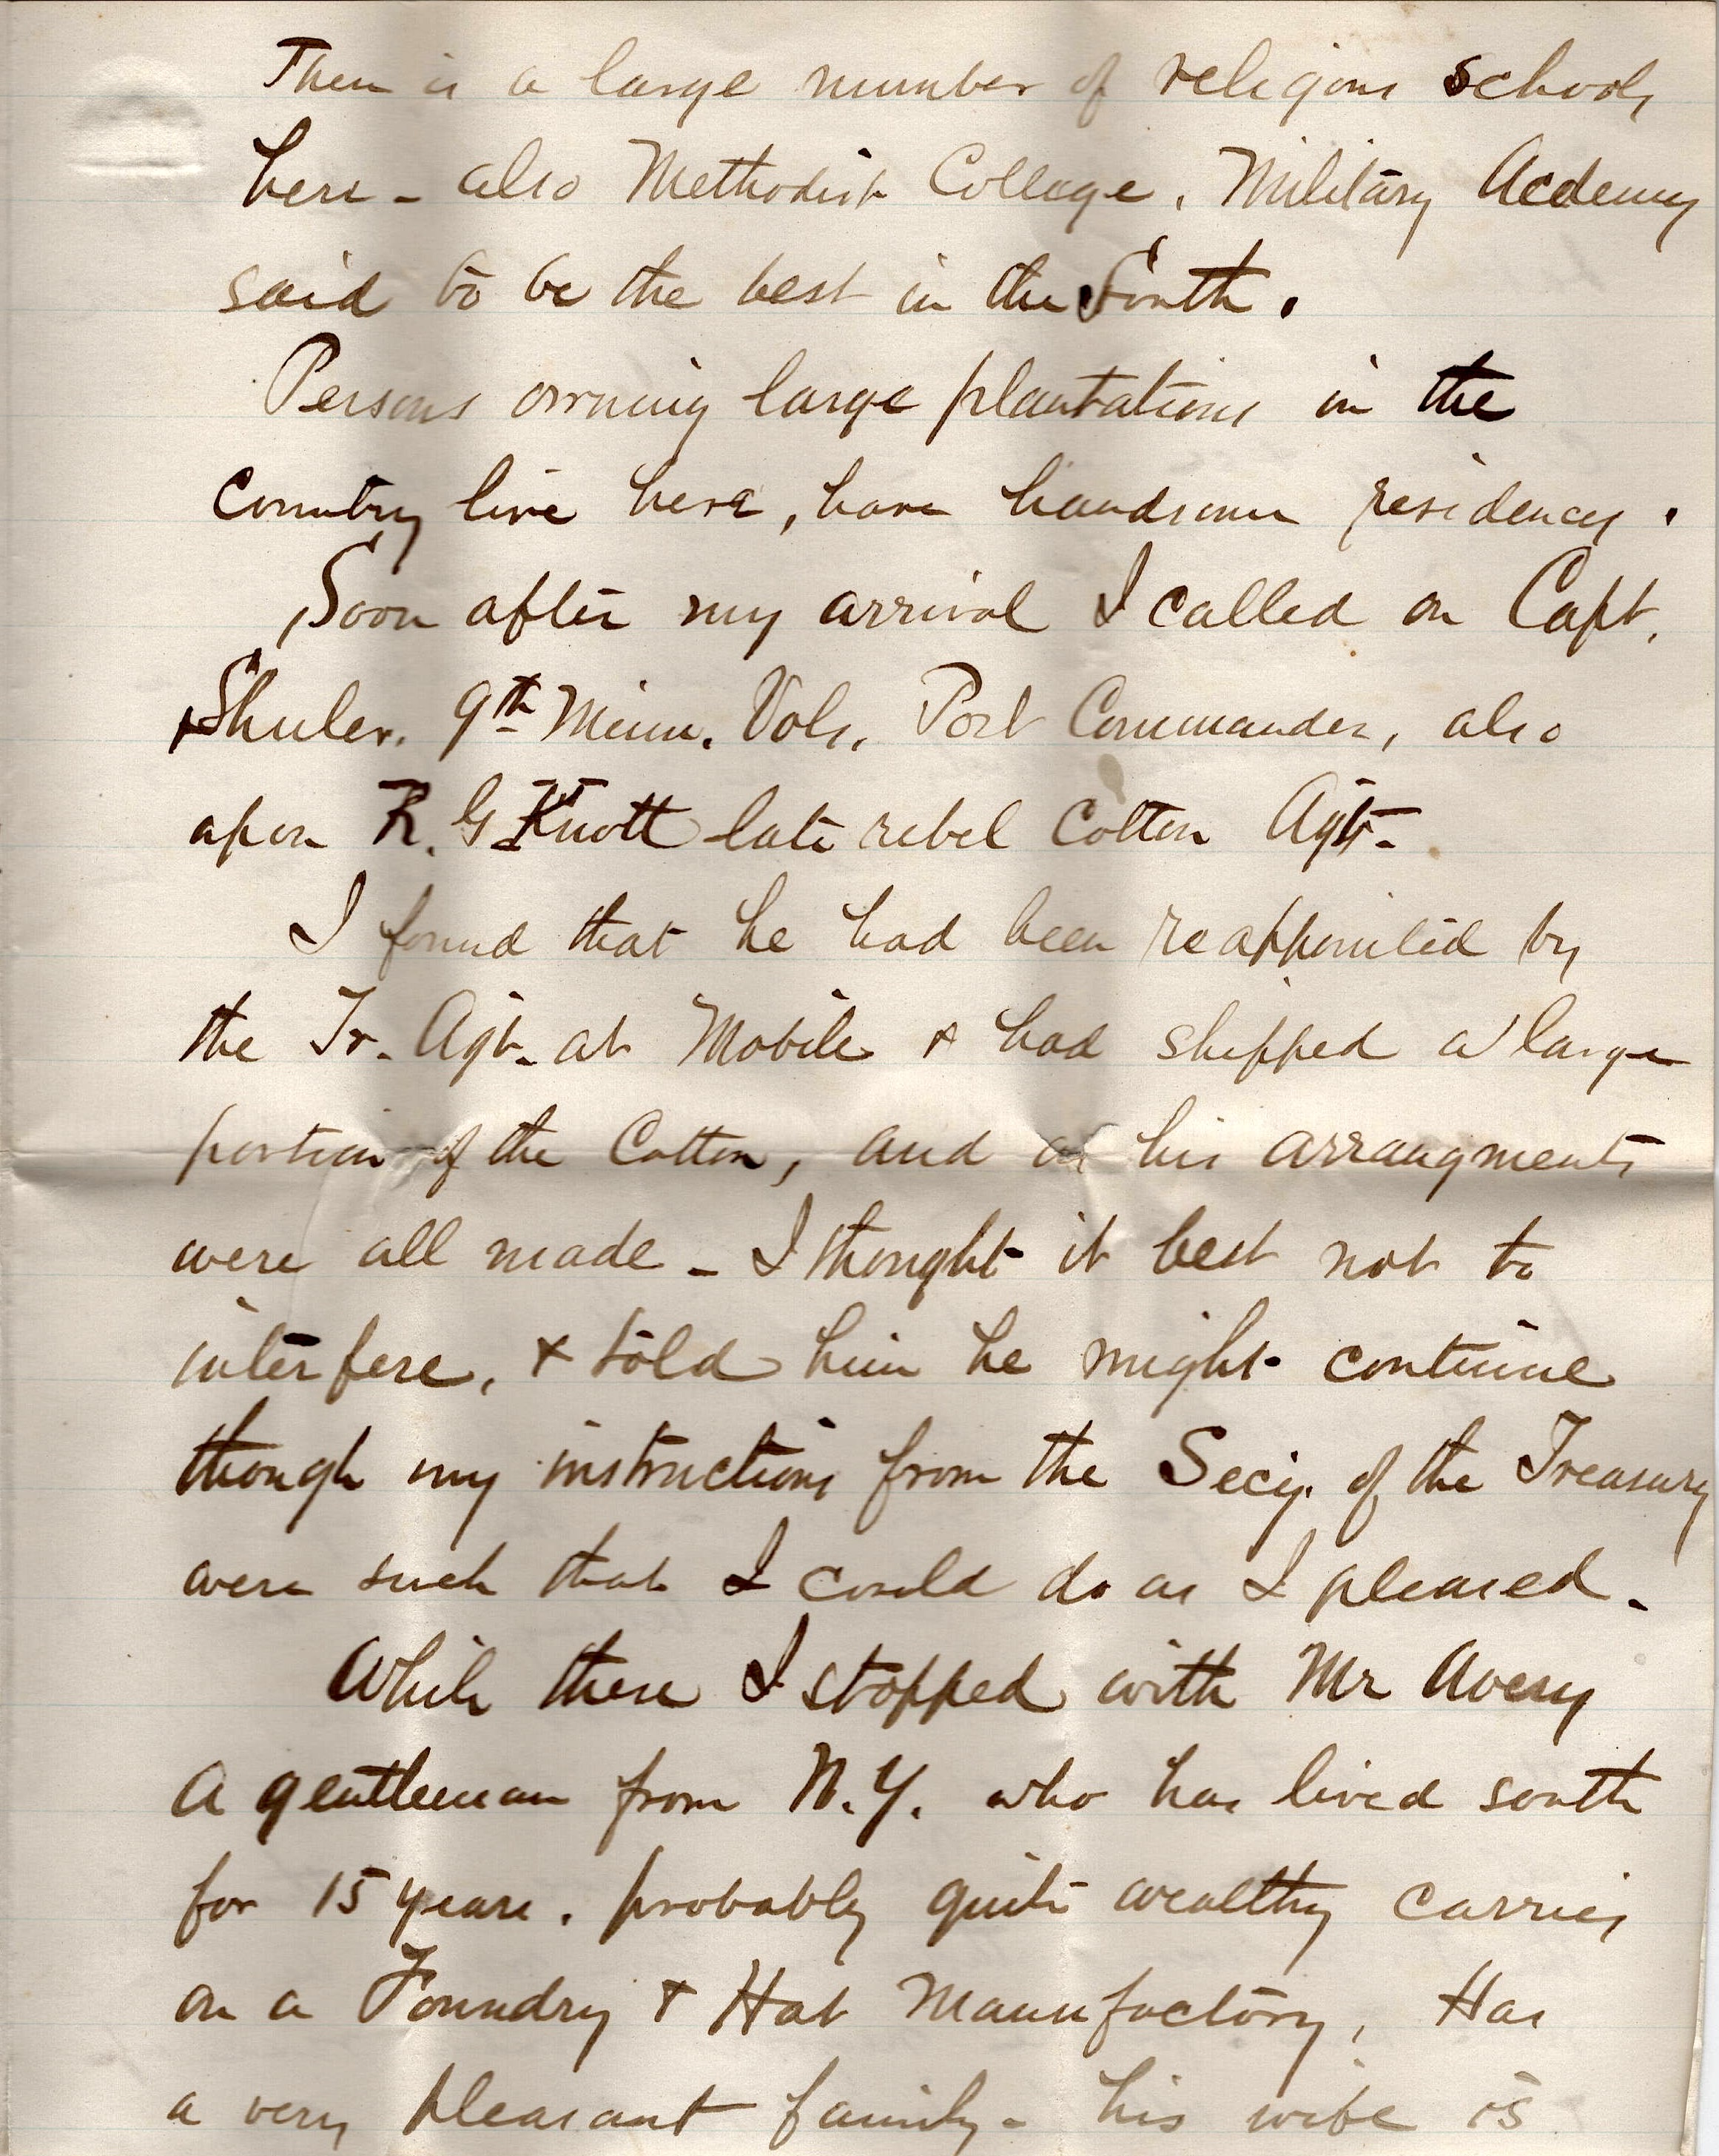 There is a large number of religious schools
here - also Methodist College, Military Acdemy
said to be the best in the South.
Persons owning large plantations in the
Country live here, have handsome residences.
Soon after my arrival I called on Capt.
Shuler. 9th Minn. Vols. Post Commander, also
upon R. G Knott late rebel Cotton Agt-
I found that he had been reappointed by
the Tr. Agt. at Mobile & had shipped a large
portion of the Cotton, and as his arrangments
were all made - I thought it best not to
interfere, & told him he might continue
though my instructions from the Secy. of the Treasury
were such that I could do as I pleased.
While there I stopped with Mr Avery
a gentleman from N.Y. who has lived south
for 15 years. probably quite wealthy carries
on a Foundry & Hat Manufactory, Has
a very pleasant family - his wife is